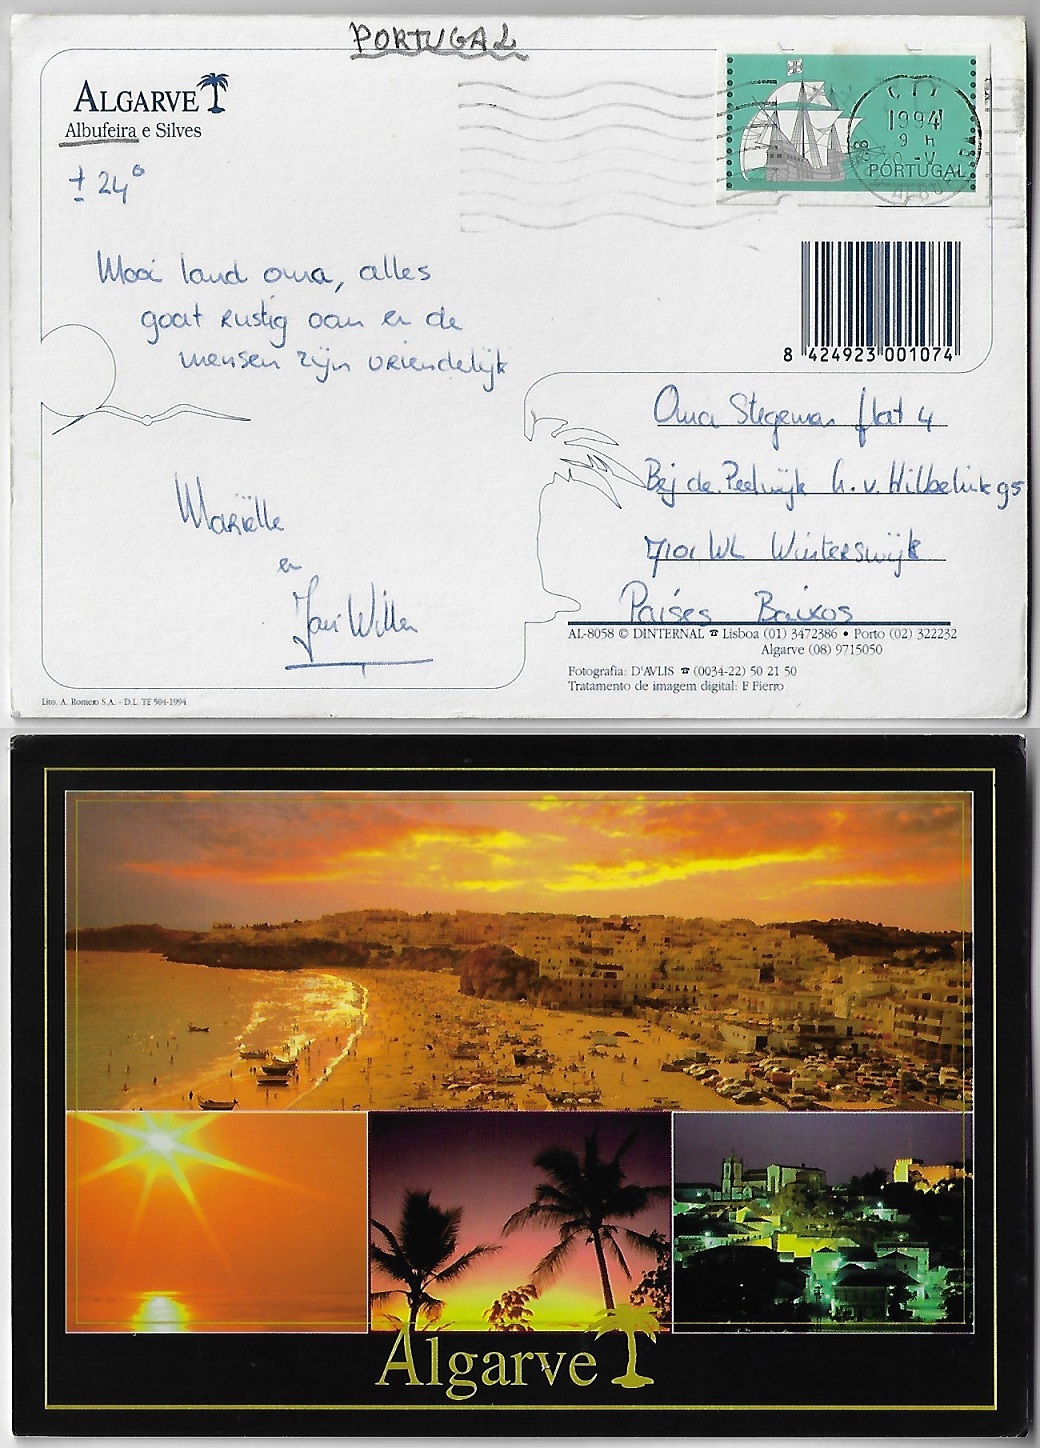 PORTUGAL
ALGARVE
Albufeira e Silves
± 24°
Mooi land oma, alles
gaat rustig aan en de
mensen zijn vriendelijk
Mariëlle
en
Jan Willem
1994
9 H
20 -V
PORTUGAL
8 424923 001074
Oma Stegeman flat 4
Bij de Pelwijk h.v. Hilbelink 95
7101 WL Winterswijk
Países Baixos
AL-8058 © DINTERNAL ☎ Lisboa (01) 3472386 • Porto (02) 322232
Algarve (08) 9715050
Fotografia: D'AVLIS ☎ (0034-22) 50 21 50
Tratamento de imagem digital: F Fierro
Lito. A. Romero S.A. - D.L. TF 504-1994
Algarve